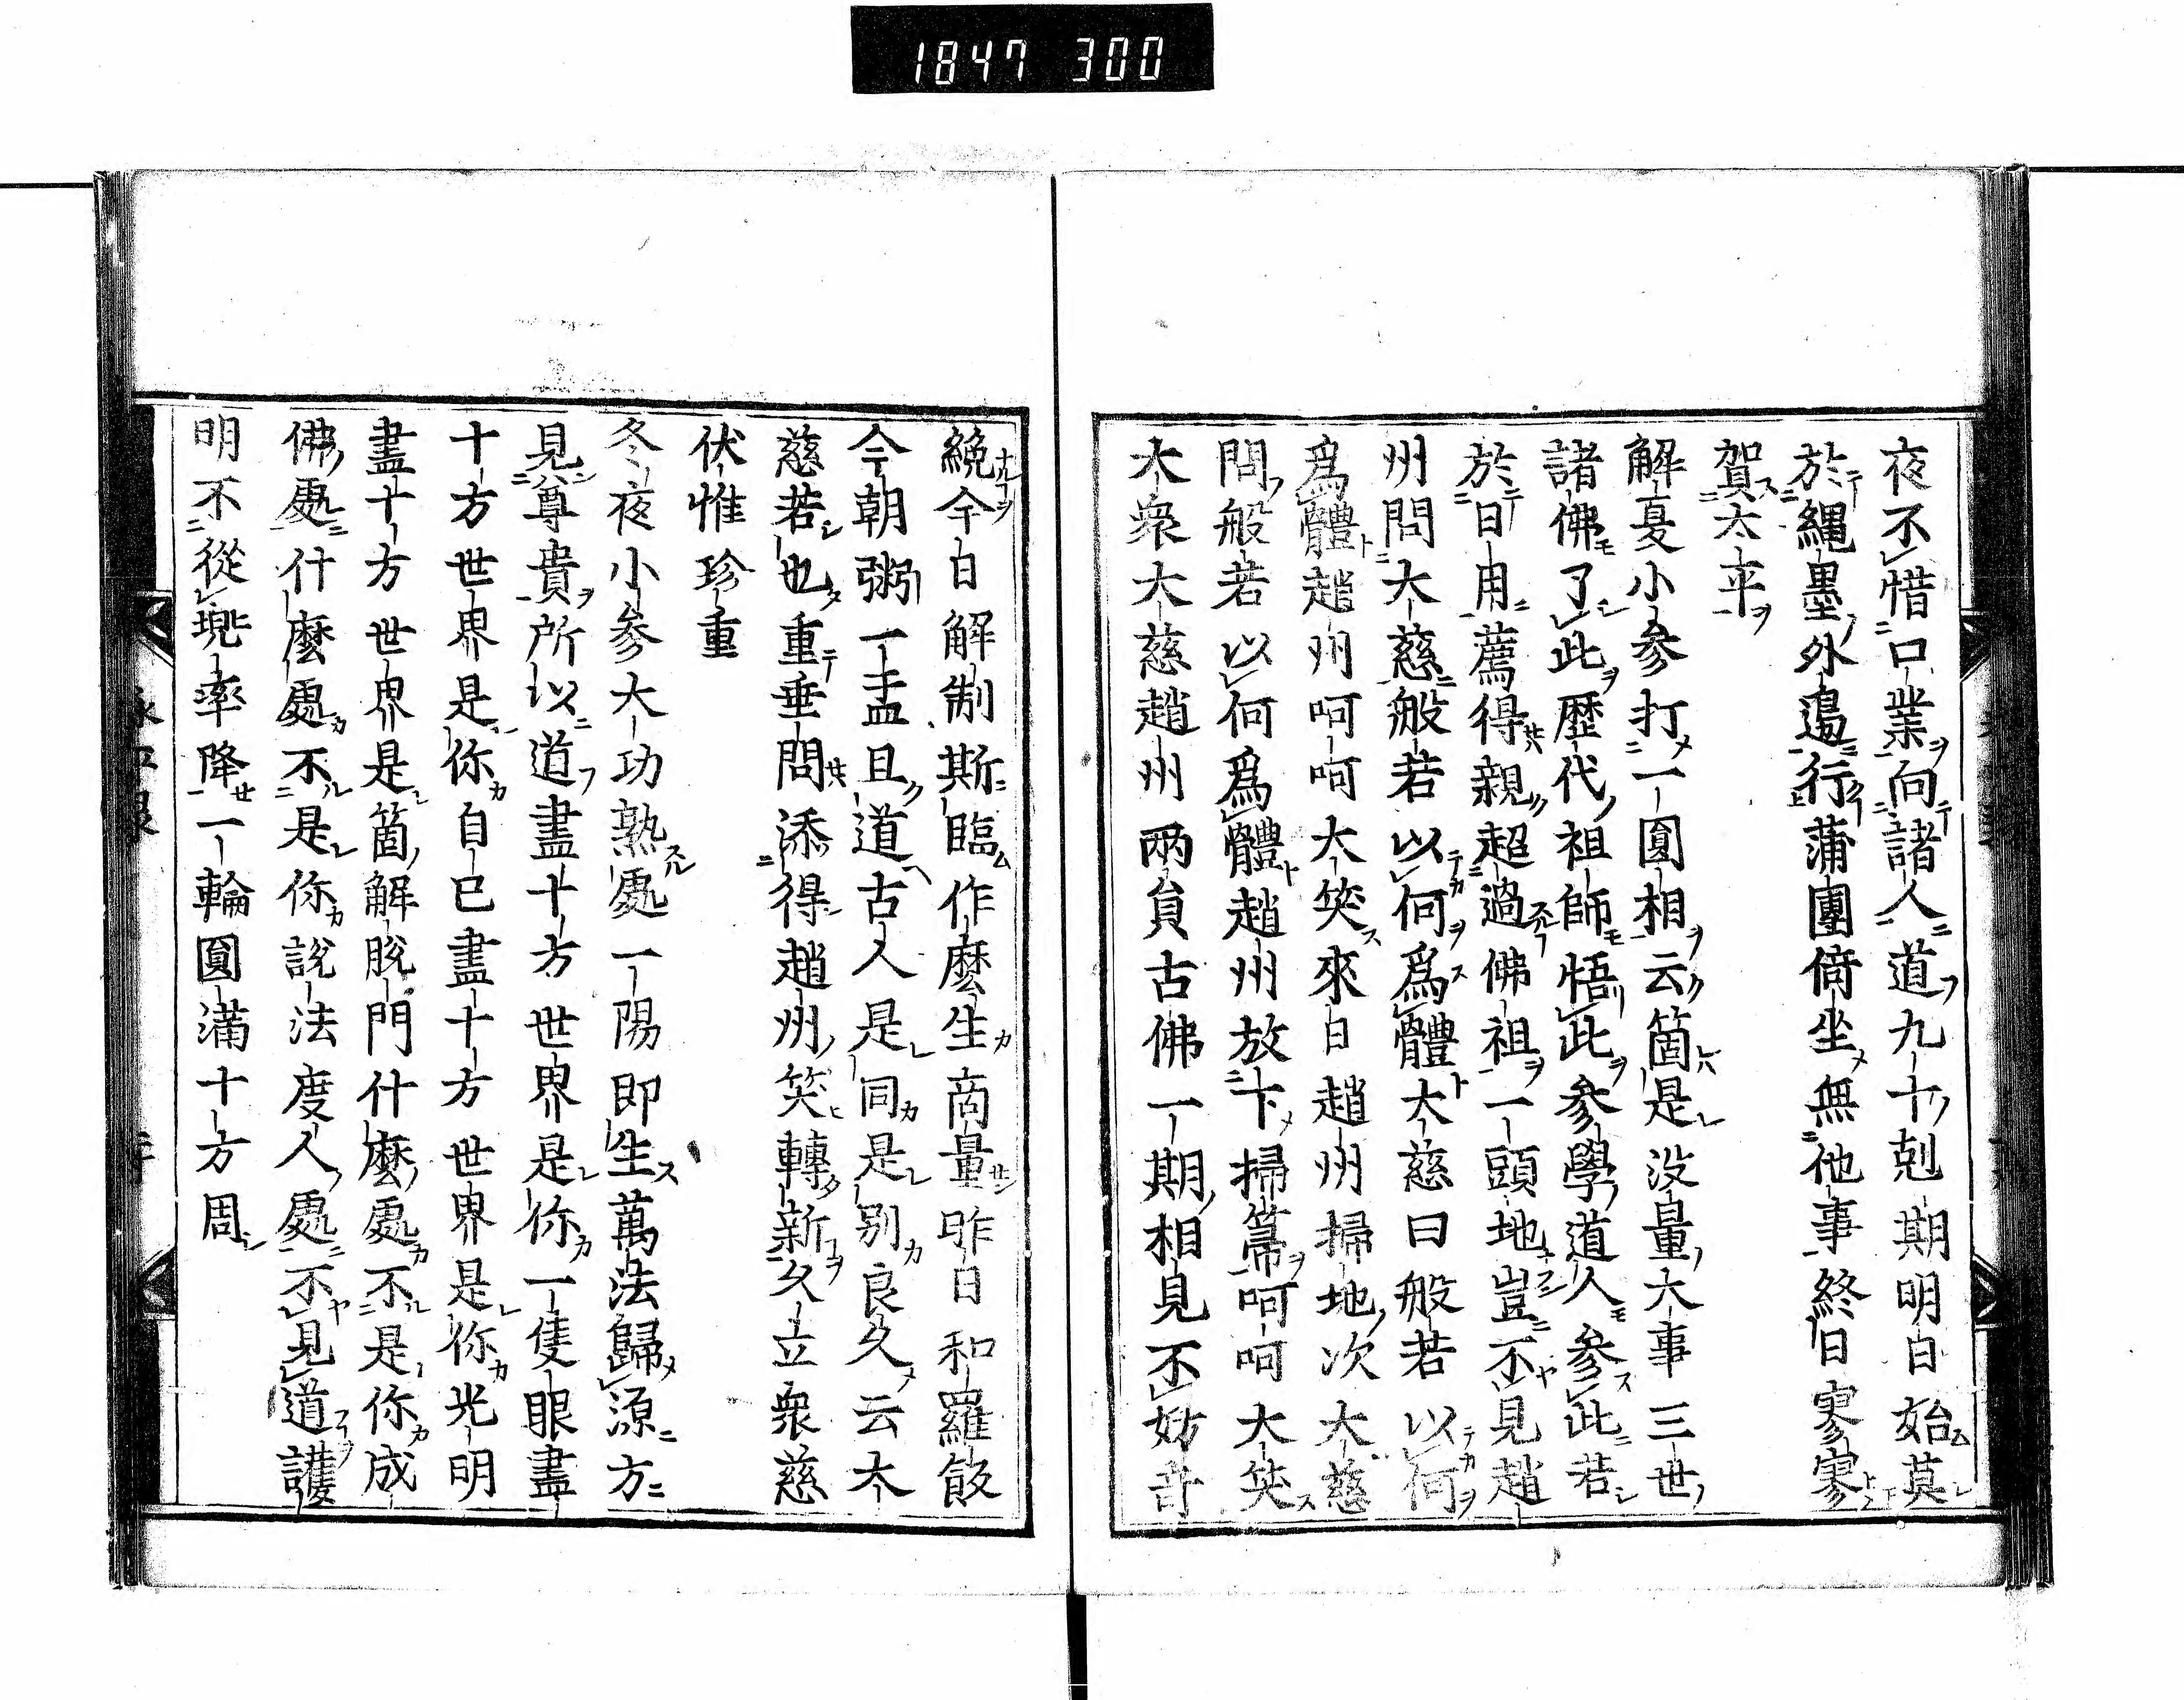 1847 300
夜不惜口業向諸人道九十剋期明白始莫
於繩墨外邊行蒲團倚坐無他事終日寥寥
賀太平
解夏小參打一圓相云箇是沒量大事三世
諸佛了此歷代祖師悟此參學道人參此若
於日用薦得親超過佛祖一頭地豈不見趙
州問大慈般若以何爲體大慈曰般若以何
爲體趙州呵呵大笑來日趙州掃地次大慈
問般若以何爲體趙州放下掃箒呵呵大笑
大衆大慈趙州兩員古佛一期相見不妨奇
絶今日解制斯臨作麼生商量昨日和羅飯
今朝粥一盂且道古人是同是別良久云大
慈若也重垂問添得趙州笑轉新久立衆慈
伏惟珍重
冬夜小參大功熟處一陽即生萬法歸源方
見尊貴所以道盡十方世界是你一隻眼盡
十方世界是你自己盡十方世界是你光明
盡十方世界是箇解脫門什麼處不是你成
佛處什麼處不是你說法度人處不見道護
明不從兜率降一輪圓滿十方周